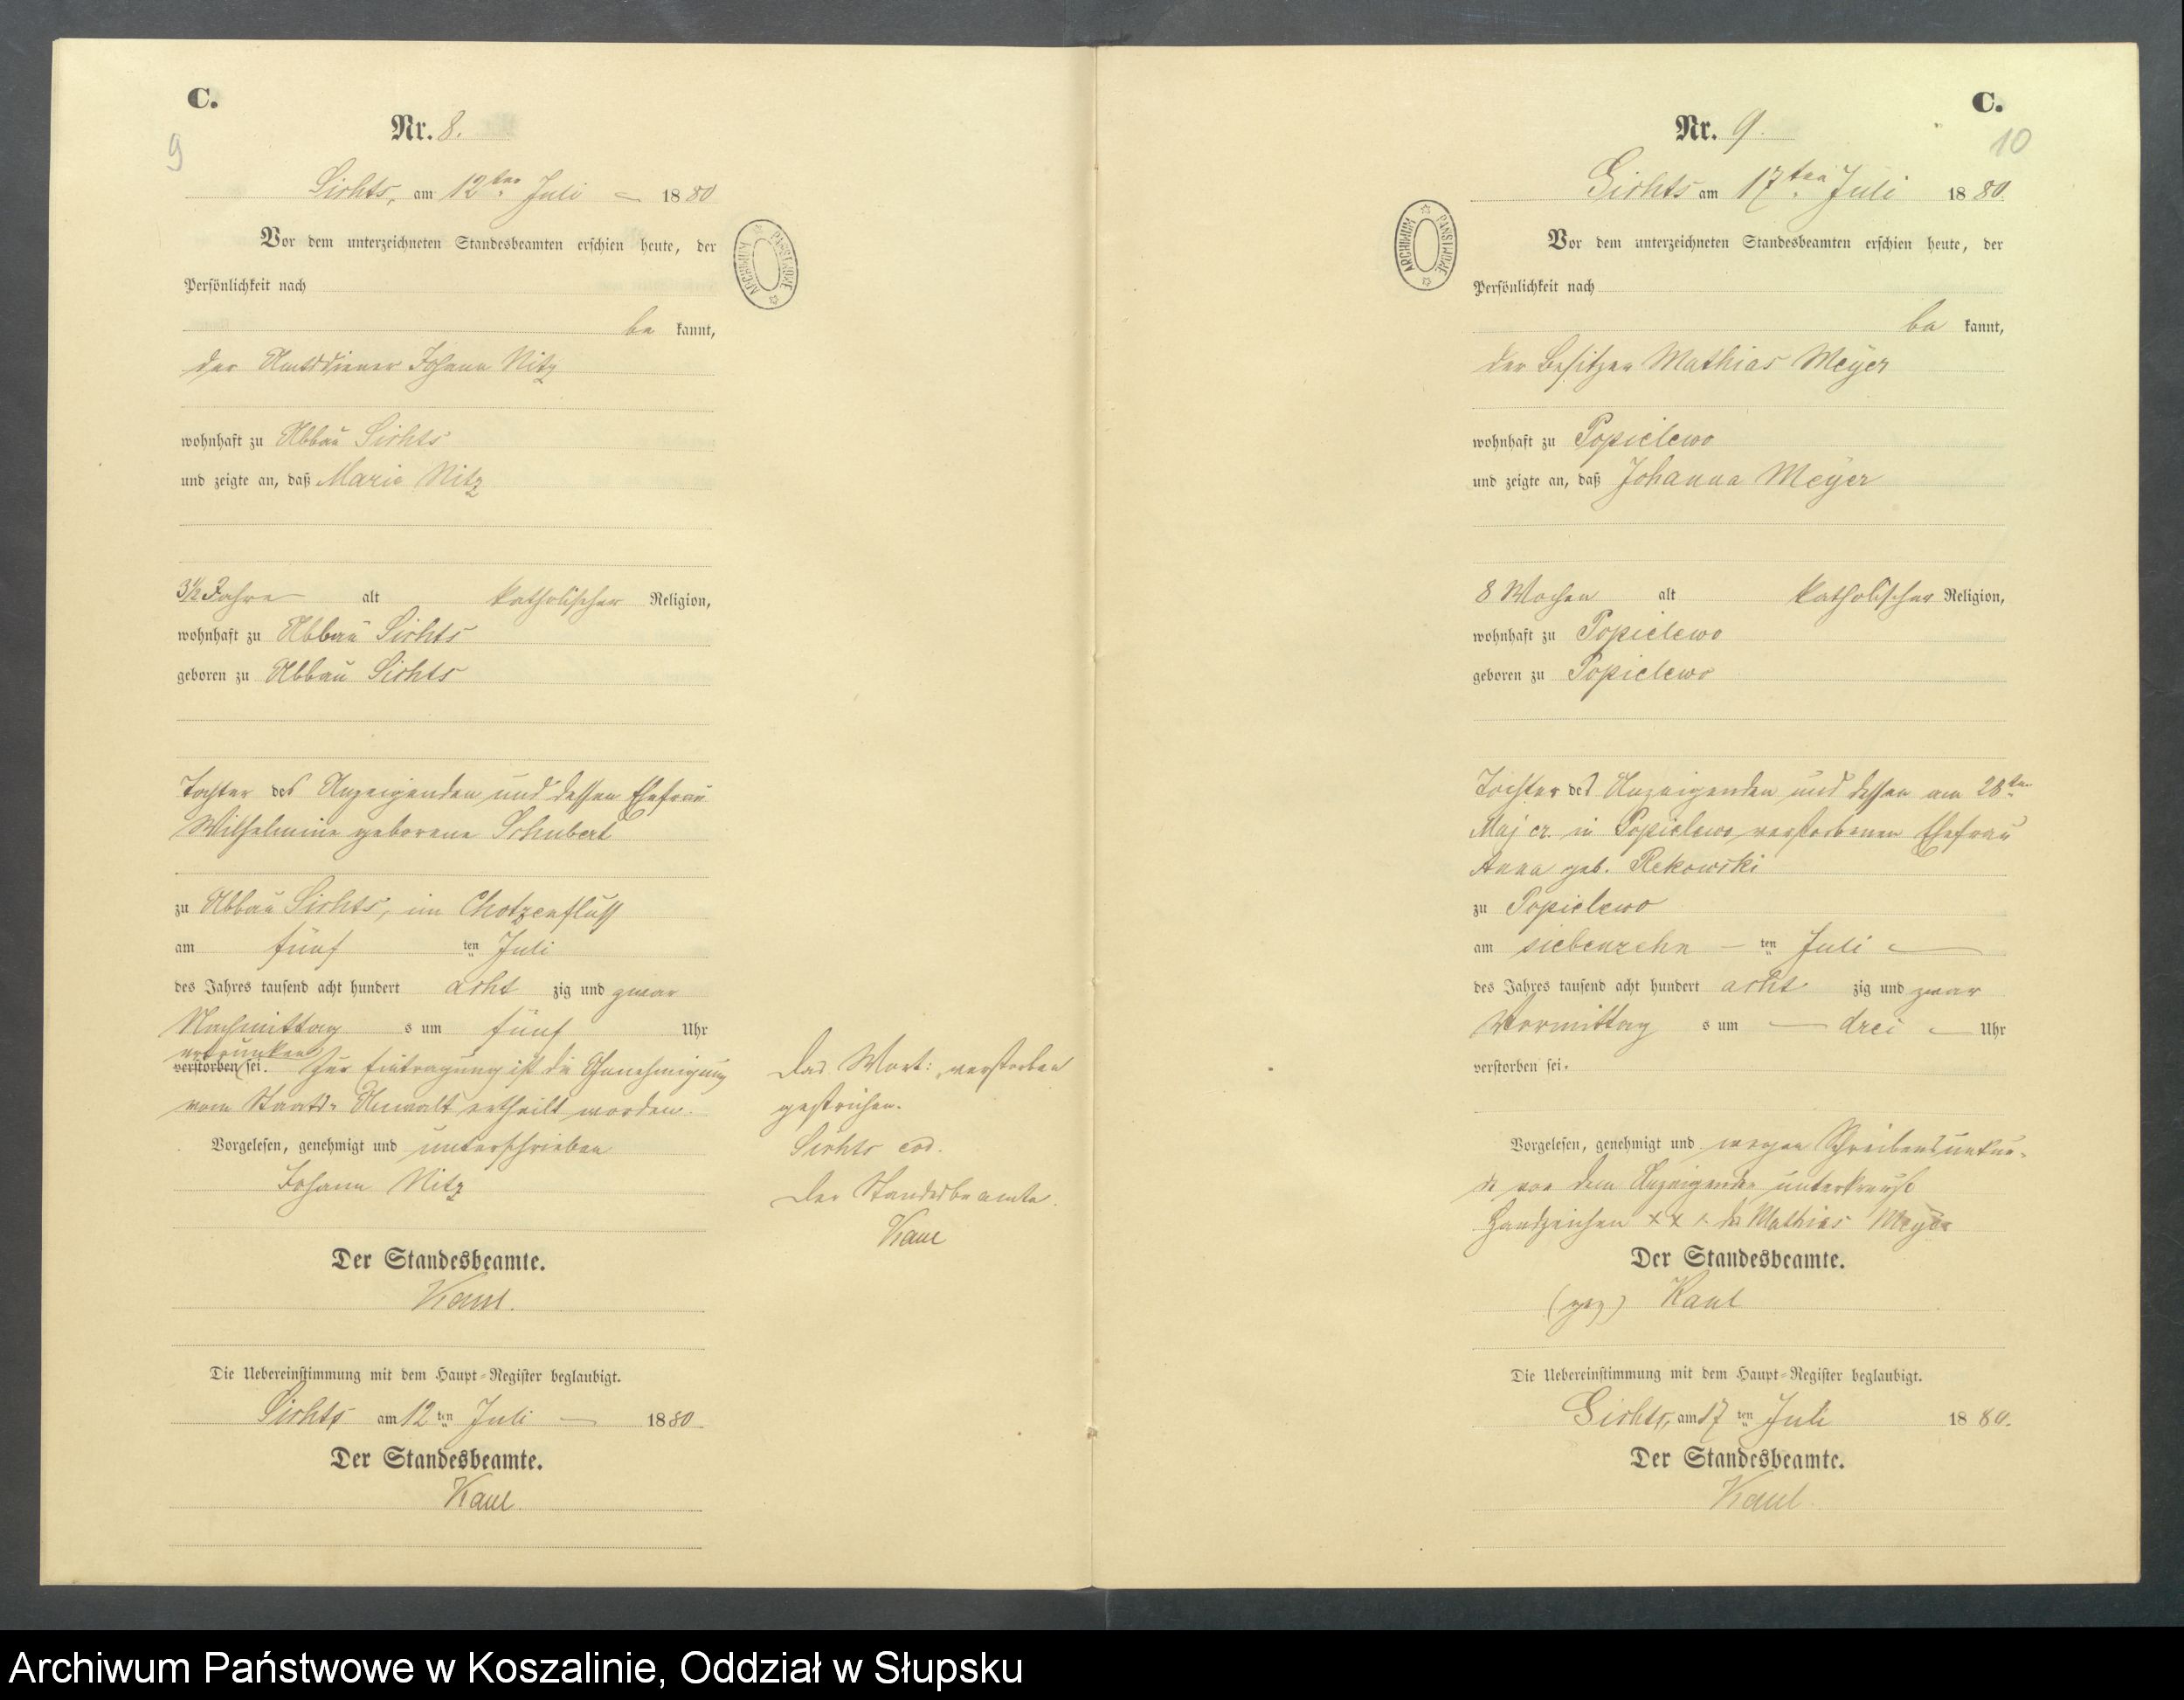 C.
Nr. 8.
9
Sichts, am 12ten Juli 1880
Vor dem unterzeichneten Standesbeamten erschien heute, der
Persönlichkeit nach
be kannt,
der Amtsdiener Johann Nitz
wohnhaft zu Abbau Sichts
und zeigte an, daß Marie Nitz
3½ Jahre alt katholischer Religion,
wohnhaft zu Abbau Sichts
geboren zu Abbau Sichts
Tochter des Anzeigenden und dessen Ehefrau
Wilhelmine geborene Schubert
zu Abbau Sichts, im Chotzenfluß
am fünf ten Juli
des Jahres tausend acht hundert acht zig und zwar
Nachmittag s um fünf Uhr
ertrunken
verstorben sei. Zur Eintragung ist die Genehmigung
vom Staats-Anwalt ertheilt worden.
Vorgelesen, genehmigt und unterschrieben
Johann Nitz
Der Standesbeamte.
Kaul.
Die Uebereinstimmung mit dem Haupt-Register beglaubigt.
Sichts am 12 ten Juli 1880
Der Standesbeamte.
Kaul
Das Wort: „verstorben
gestrichen.
Sichts eod.
Der Standesbeamte.
Kaul
ARCHIWUM PAŃSTWOWE
C.
Nr. 9.
10
Sichts am 17ten Juli 1880.
ARCHIWUM PAŃSTWOWE
Vor dem unterzeichneten Standesbeamten erschien heute, der
Persönlichkeit nach
be kannt,
der Besitzer Mathias Meyer
wohnhaft zu Popielewo
und zeigte an, daß Johanna Meyer
8 Wochen alt katholischer Religion,
wohnhaft zu Popielewo
geboren zu Popielewo
Tochter des Anzeigenden und dessen am 28ten
Maj cr. in Popielewo verstorbenen Ehefrau
Anna geb. Rekowski
zu Popielewo
am siebenzehn ten Juli
des Jahres tausend acht hundert acht zig und zwar
Vormittag s um drei Uhr
verstorben sei.
Vorgelesen, genehmigt und wegen Schreibensunkun-
de von dem Anzeigenden unterkreuzt
Handzeichen x x x des Mathias Meyer
Der Standesbeamte.
(gez) Kaul
Die Uebereinstimmung mit dem Haupt-Register beglaubigt.
Sichts, am 17 ten Juli 1880.
Der Standesbeamte.
Kaul.
Archiwum Państwowe w Koszalinie, Oddział w Słupsku